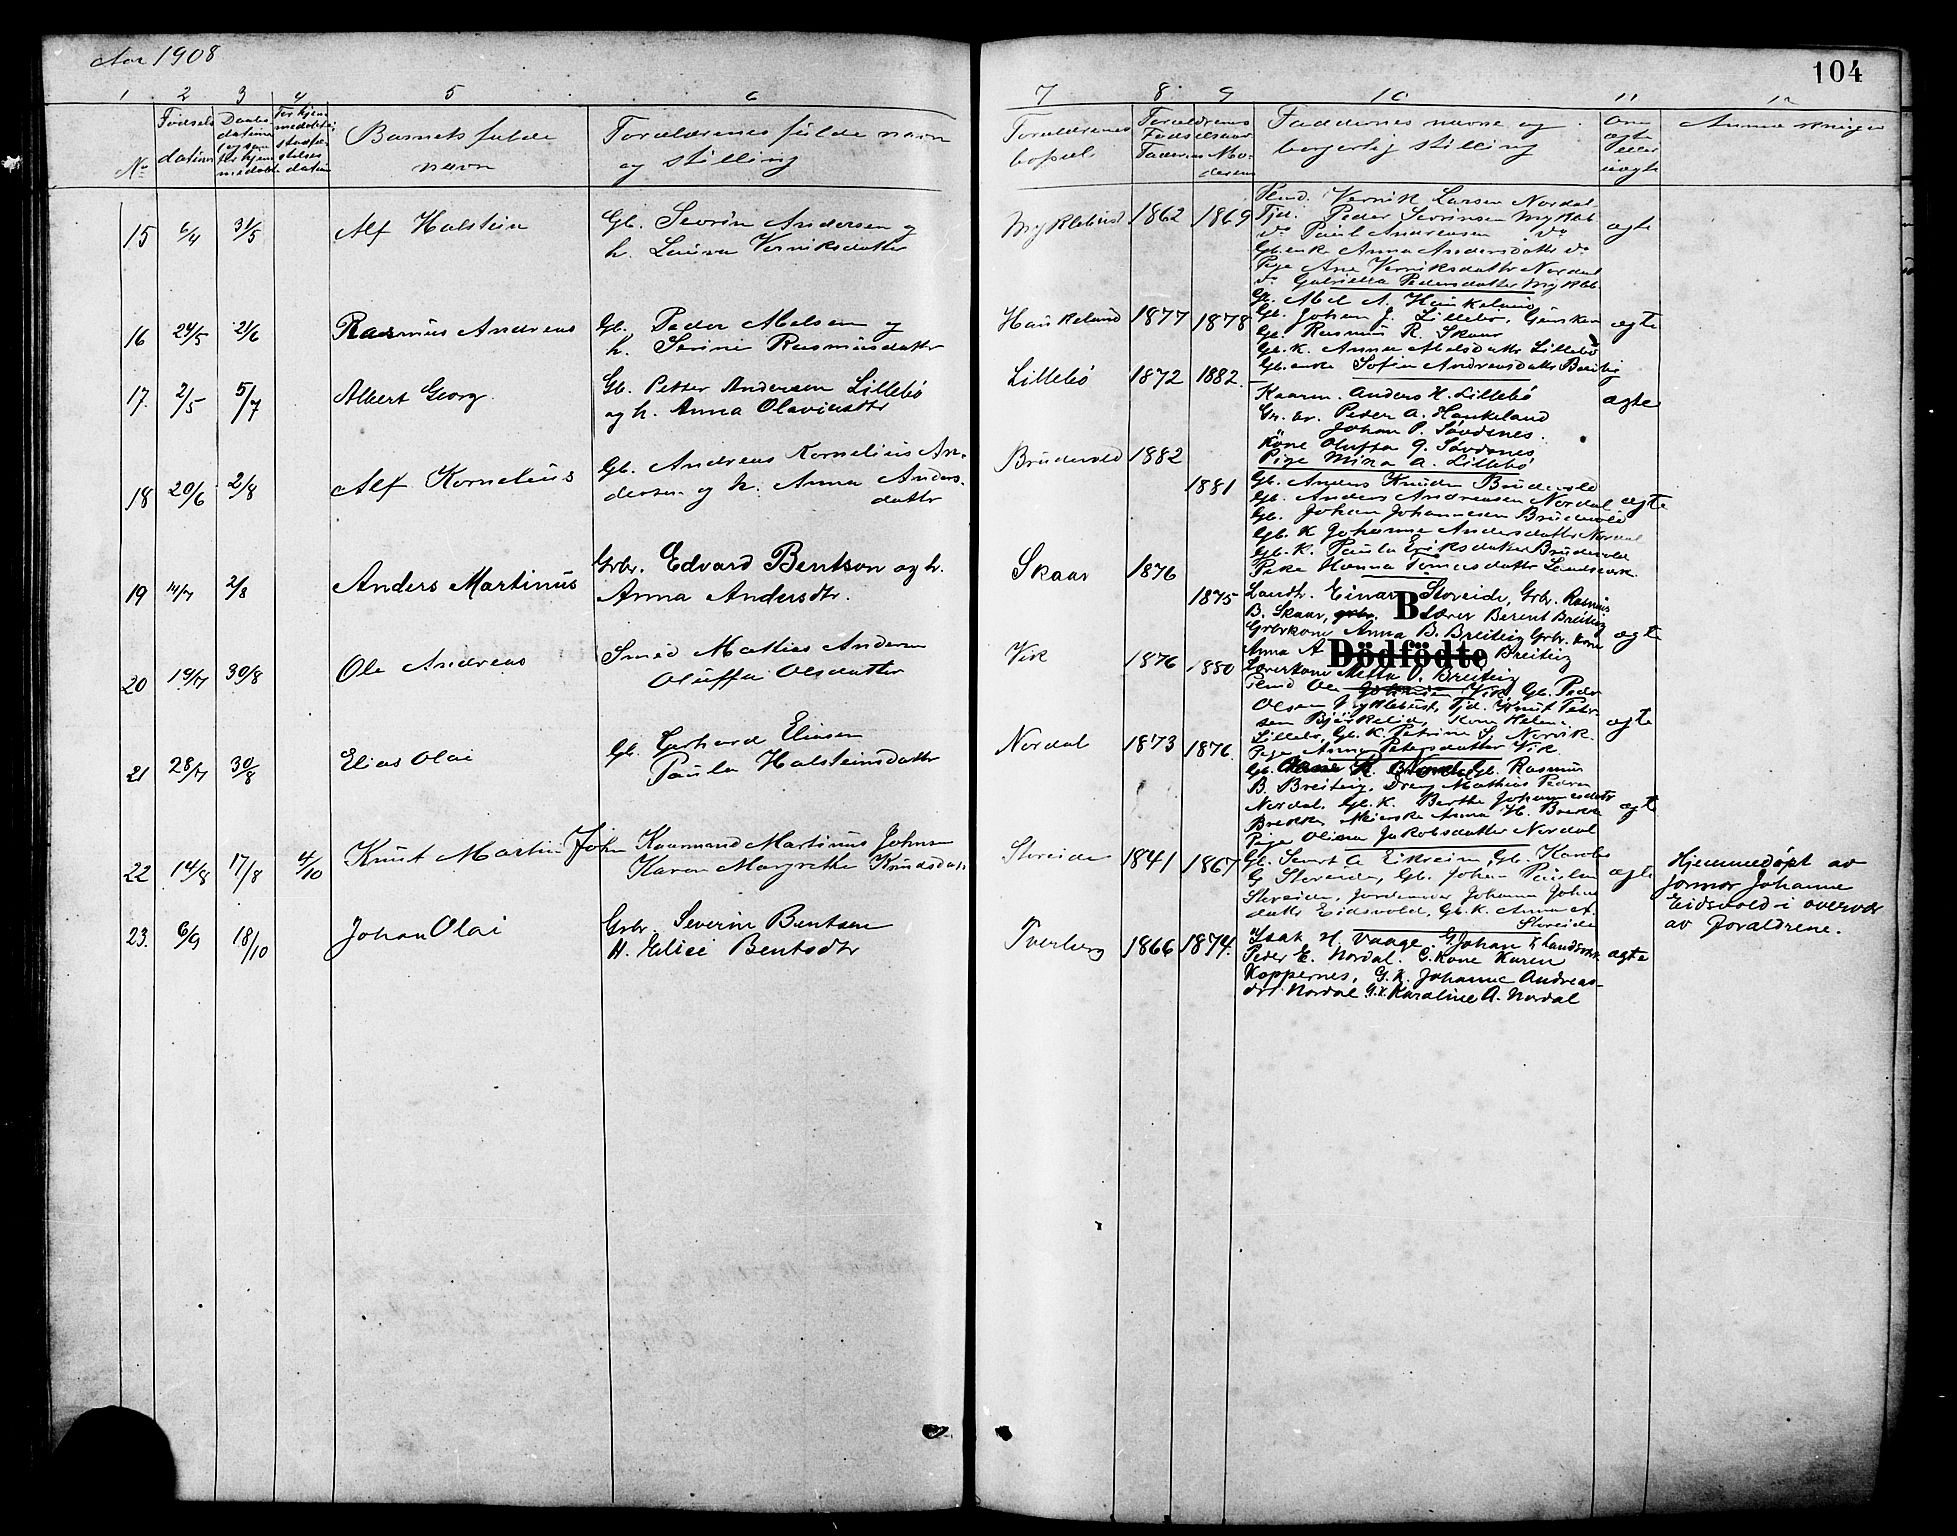 Aar 1908
104
1 2 3 4 5 6
7 8 9 10 11 12
No
Fødsels
datum
Daabs-
datum
Barnets fulde
navn
Forældrenes fulde navn
og stilling
Forældrenes
bopæl
Forældrenes
Fødselsaar
Faderens
Moderens
Faddernes navne og
borgerlig stilling
Om
ægte
eller
uægte
Anmærkninger
15 6/4 31/5 Alf Halstein Gb. Severin Andersen og
h. Laura Verniksdatter
Myklebust 1862 1869 ægte
Plmd. Vernik Larsen Nordal
Tjd. Peder Severinsen Mykleb
do Paul Andreassen do
Gb.enke Anna Andersdattr do
Pige Ane Verniksdattr Nordal
do Gabriella Pedersdatter Mykleb
16 24/5 21/6 Rasmus Andreas Gb. Peder Abelsen og
h. Serine Rasmusdattr
Haukeland 1877 1878 ægte
Gb. Abel A. Haukeland
Gb. Johan J. Lillebø,
Gb. Rasmus R. Skaar
Gb.k. Anna Abelsdattr Lillebø
Gb.enke Sofie Andreasdattr Breiteig
17. 2/5 5/7 Albert Georg. Gb. Petter Andersen Lillebø
og h. Anna Olavisdttr
Lillebø 1872 1882. ægte
Kaarm. Anders K. Lillebø
Gr. br. Peder A. Haukeland
Johan P. Søvdsnes.
Kone Oluffa G. Søvdsnes
Pige Mina A. Lillebø
18 20/6 2/8 Alf Kornelius Gb. Andreas Kornelius An-
dersen og h. Anna Anders-
dattr
Brudevold 1882
1881 ægte
Gb. Anders Knuden Brudevold
Gb. Anders Andreasen Nordal
Gb. Johan Johannesen Brudevold
Gb. K Johanne Andersdattr Nordal
Gb. K. Paula Eriksdatter Brudevold
Pike Hanna Tomasdattr Landsverk
19 14/7 2/8 Anders Martinus Grbr. Edvard Bentson og h.
Anna Andersdtr.
Skaar 1876
1875 ægte
Landh. Einar Storeide, Grbr. Rasmus
B. Skaar, grbr. Lærer Berent Breiteig
Grbrkone Anna B. Breiteig Grbr. kone
Anna A Breiteig
Lærerkone Metta O. Breiteig
B.
Dödfödte
20 19/7 30/8 Ole Andreas Smed Mathias Andersen
Oluffa Olsdatter
Vik 1876 1880 ægte
Plmd Ole Vik, Gb. Peder
Olsen Myklebust, Tjd. Knut Peter-
sen Bjørkelid, Kone Helene
Lillebø, Gb. K. Petrine S. Nervik
Pige Anna Petersdatter Vik
21 28/7 30/8 Elias Olai Gb. Gerhard Eliasen
Paula Halsteinsdattr
Nordal 1873 1876 ægte
Gb. Gb. Rasmus
B. Breiteig, Dreng Mathias Pedersen
Nordal. Gb. K. Berthe Johannesdattr
Brekke Meierske Anna H. Brekke
Pige Olina Jakobsdatter Nordal
22 14/8 17/8 4/10 Knut Martin John Kaarmand Martinus Johnsen
Karen Margrethe Knudsdatr
Storeide 1841 1867 ægte
Gb. Senert A Eikreim, Gb. Karolus
G Storeide, Gb. Johan Paulsen
Storeide, Jordemor Johanne Johns
datter Eidsvold, Gb. K. Anna A.
Storeide
Hjemmedøpt av
jormor Johanne
Eidsvold i overvær
av Foraldrene.
23. 6/9 18/10 Johan Olai Grbr. Severin Bentsen
H. Elise Bentsdtr
Tverberg 1866 1874. ægte
Isak H. Vaage. G. Johan K Landsverk
Peder E. Nordal. G. Kone Karen
Koppernes, G.K. Johanne Andreas-
dtr. Nordal. G.K. Karoline A. Nordal